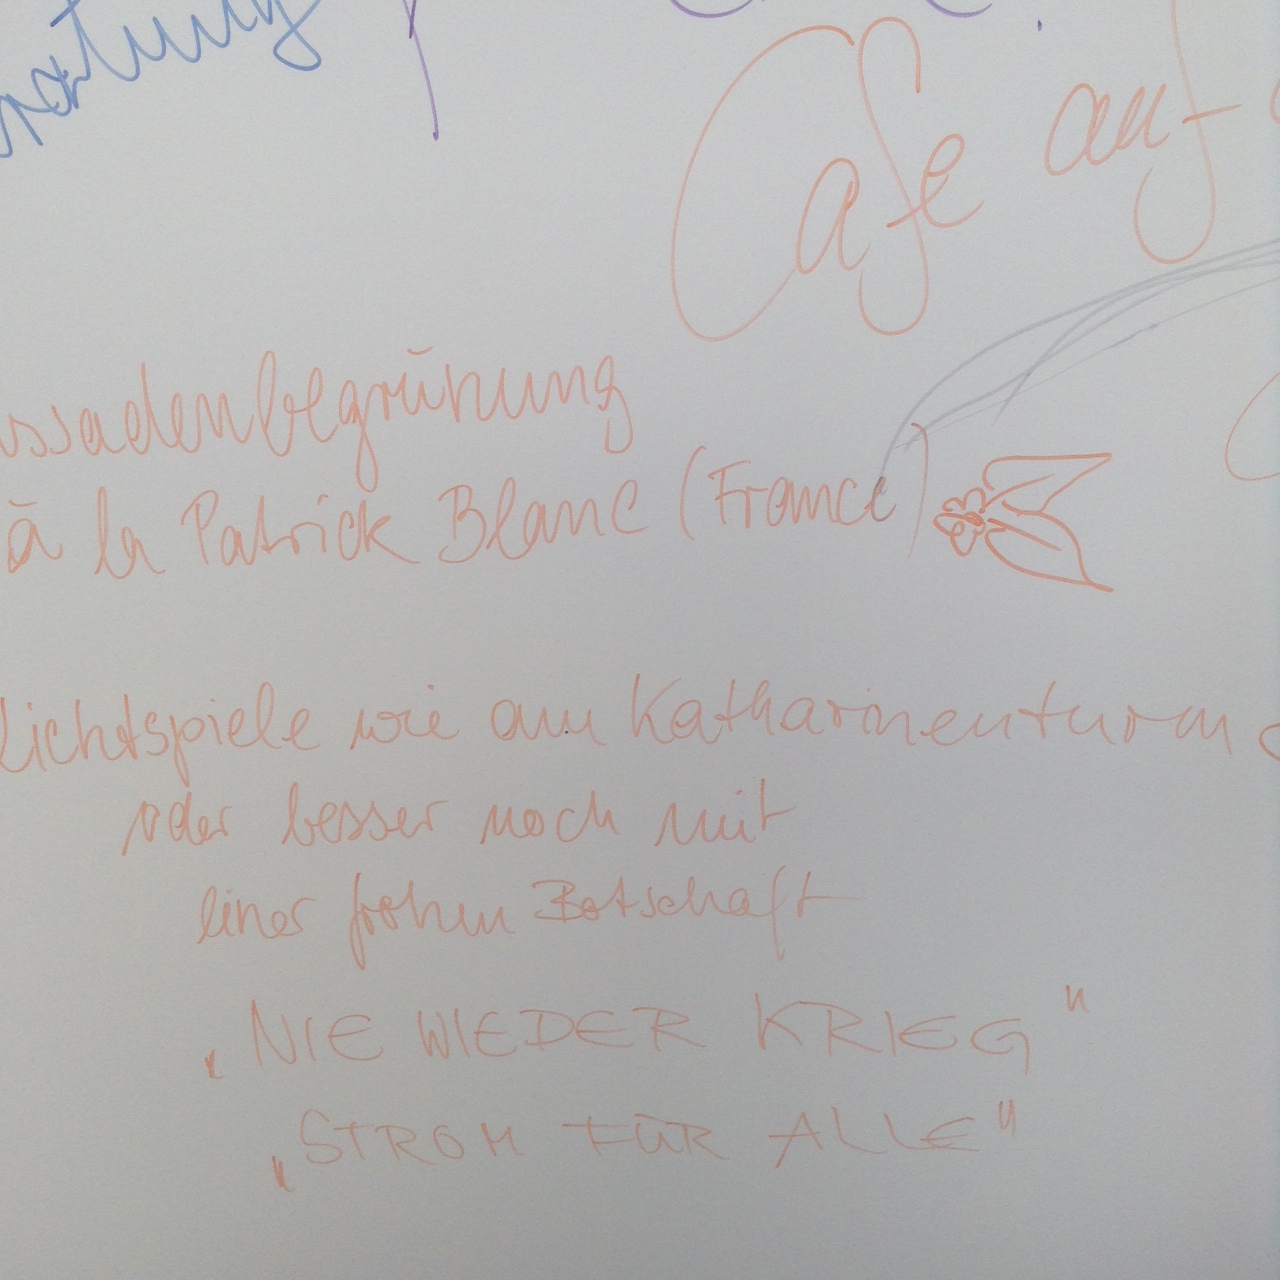 Cafe auf
ssadenbegrünung
à la Patrick Blanc (France)
Lichtspiele wie am Katharinenturm
oder besser noch mit
einer frohen Botschaft
„NIE WIEDER KRIEG"
„STROM FÜR ALLE"